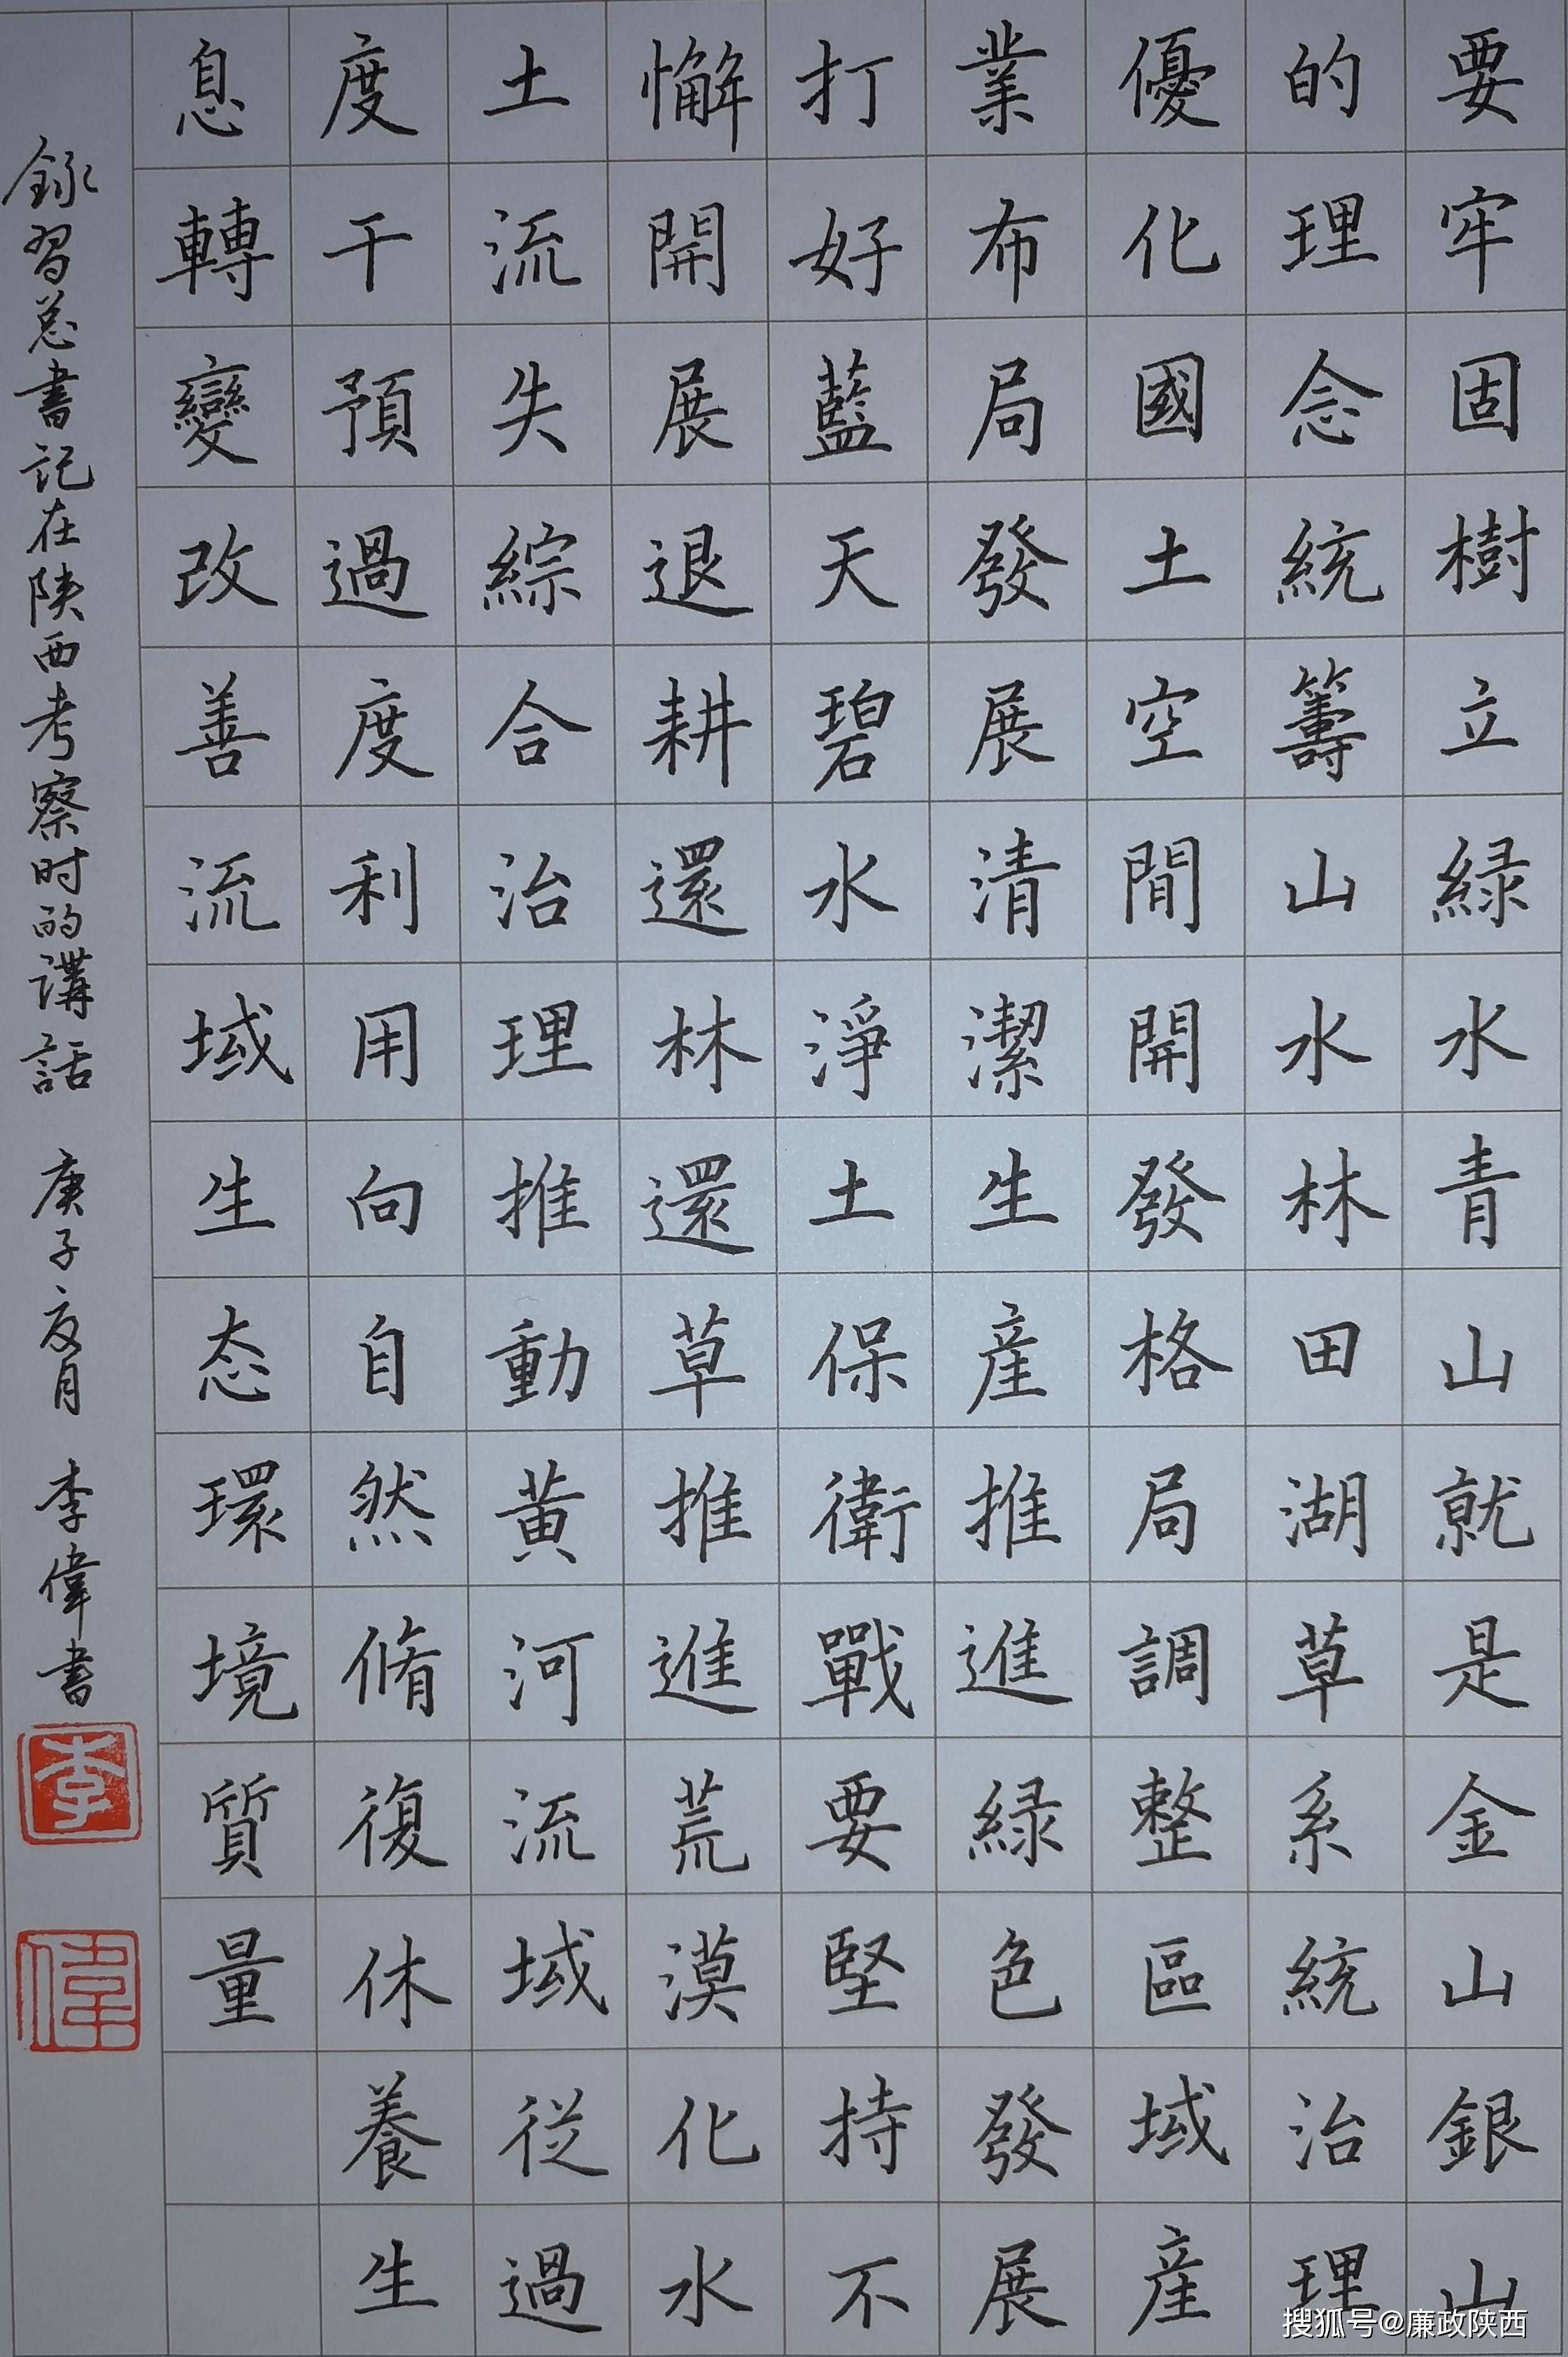 要牢固樹立緑水青山就是金山銀山
的理念統籌山水林田湖草系統治理
優化國土空間開發格局調整區域産
業布局發展清潔生産推進緑色發展
打好藍天碧水淨土保衛戰要堅持不
懈開展退耕還林還草推進荒漠化水
土流失綜合治理推動黄河流域従過
度干預過度利用向自然脩復休養生
息轉變改善流域生态環境質量
録習总書記在陕西考察时的講話 庚子夏月 李偉書
李
偉
搜狐号@廉政陕西